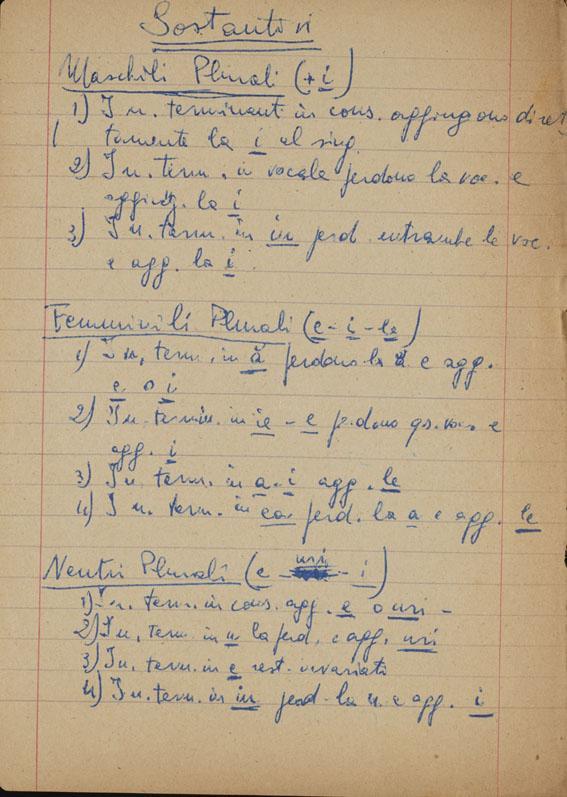 Sostantivi
Maschili Plurali (+ i)
1) I n. terminant in cons. aggiungono diret
tamente la i al sing.
2) I n. term. in vocale perdono la voc. e
aggiung. la i
3) I n. term. in iu perd. entrambe le voc.
e agg. la i.
Femminili Plurali (e - i - le)
1) I n. term. in ă perdono la ă e agg.
e o i
2) I n. termin. in ie - e p.dono qs. voc. e
agg. i
3) I n. term. in a - i agg. le
4) I n. term. in ea perd. la a e agg. le
Neutri Plurali (e - uri - i)
1) I n. term. in cons. agg. e o uri -
2) I n. term. in u la perd. e agg. uri
3) I n. term. in e rest. invariati
4) I n. term. in iu perd. la u e agg. i